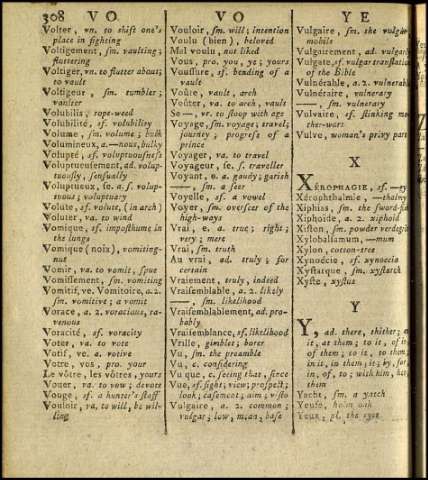 308 VO
VO
YE
Volter, vn. to shift one's
place in fighting
Voltigement, sm. vaulting;
fluttering
Voltiger, vn. to flutter about;
to vault
Voltigeur, sm. tumbler;
vaulter
Volubilis; rope-weed
Volubilité, sf. volubility
Volume, sm. volume; bulk
Volumineux, a.—nous, bulky
Volupté, sf. voluptuousness
Voluptueusement, ad. volup-
tuously, sensually
Voluptueux, se a. s. volup-
tuous; voluptuary
Volute, sf. volute, (in arch)
Voluter, va. to wind
Vomique, sf. imposthume in
the lungs
Vomique (noix), vomiting-
nut
Vomir, va. to vomit, spue
Vomissement, sm. vomiting
Vomitif, ve. Vomitoire, a. 2.
sm. vomitive; a vomit
Vorace, a. 2. voracious, ra-
venous
Voracité, sf. voracity
Voter, va. to vote
Votif, ve. a. votive
Votre, vos, pro. your
Le vôtre, les vôtres, yours
Vouer, va. to vow; devote
Vouge, sf. a hunter's staff
Vouloir, va. to will, be wil-
ling
Vouloir, sm. will; intention
Voulu (bien), beloved
Mal voulu, not liked
Vous, pro. you, ye; yours
Voussure, sf. bending of a
vault
Voûte, vault, arch
Voûter, va. to arch, vault
Se —, vr. to stoop with age
Voyage, sm. voyage; travel;
journey; progress of a
prince
Voyager, va. to travel
Voyageur, se s. traveller
Voyant, e. a. gaudy; garish
—, sm. a seer
Voyelle, sf. a vowel
Voyer, sm. overseer of the
high-ways
Vrai, e. a. true; right;
very; mere
Vrai, sm. truth
Au vrai, ad. truly; for
certain
Vraiement, truly, indeed
Vraisemblable, a. 2. likely
—, sm. likelihood
Vraisemblablement, ad. pro-
bably
Vraisemblance, sf. likelihood
Vrille, gimblet; borer
Vu, sm. the preamble
Vu, c. considering
Vu que, c. seeing that, since
Vue, sf. sight; view; prospect;
look; casement; aim; visto
Vulgaire, a. 2. common;
vulgar; low, mean, base
Vulgaire, sm. the vulgar
mobile
Vulgairement, ad. vulgarly
Vulgate, sf. vulgar translation
of the Bible
Vulnérable, a. 2. vulnerable
Vulnéraire, vulnerary
—, sm. vulnerary
Vulvaire, sf. stinking mo-
ther-wort
Vulve, woman's privy part
X
XÉROPHAGIE, sf.
Xérophthalmie, —thalmy
Xiphias, sm. the sword-fish
Xiphoïde, a. 2. xiphoid
Xiston, sm. powder verdegris
Xylobalsamum, —mum
Xylon, cotton-tree
Xynoécie, sf. xynoecia
Xystarque, sm. xystarch
Xyste, xystus
Y
Y, ad. there, thither; at
it, at them; to it, of it,
of them; to it, to them;
in it, in them; it; by, for,
in, of, to; with him, her,
them
Yacht, sm. a yacht
Yeuse, holm oak
Yeux, pl. the eyes